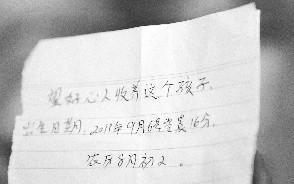 望好心人收养这个孩子.
出生日期, 2013年9月6号凌晨16分.
农历8月初2.